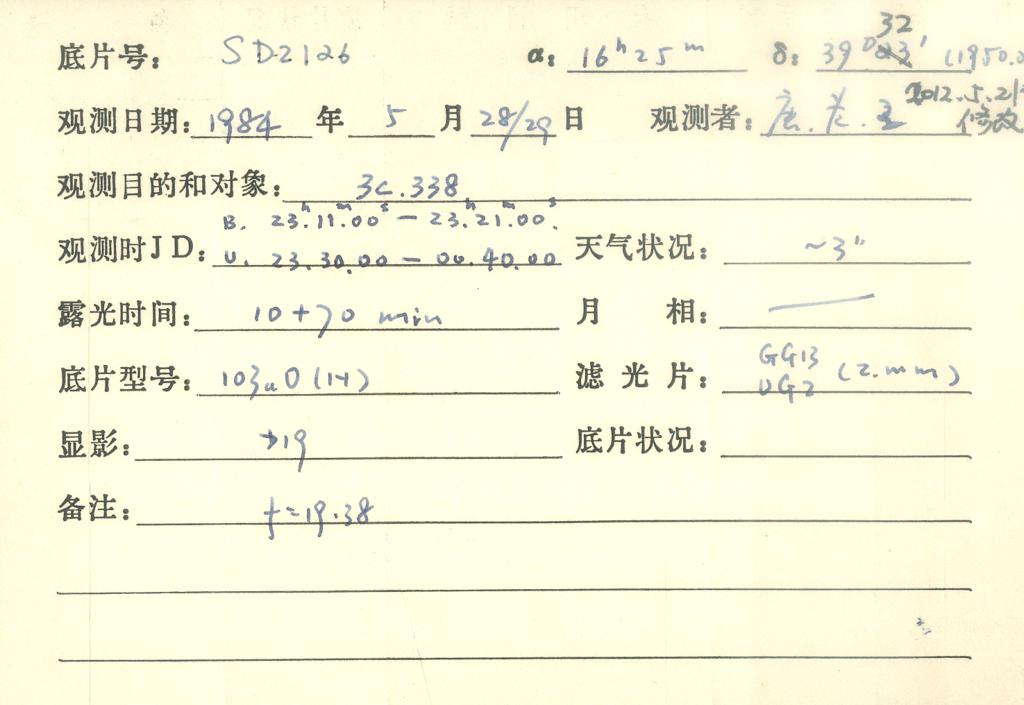 底片号: SD2126 α: 16ʰ25ᵐ δ: 39° 32′ (1950.0
观测日期: 1984 年 5 月 28/29 日 观测者: 2012.5.21 修改
观测目的和对象: 3C.338
B. 23ʰ11ᵐ00ˢ — 23ʰ21ᵐ00ˢ.
观测时JD: U. 23.30.00 — 00.40.00 天气状况: ~3″
露光时间: 10+70 min 月 相: —
底片型号: 103aO(IH) 滤光片: GG13 UG2 (2.mm)
显影: D19 底片状况:
备注: f=19.38